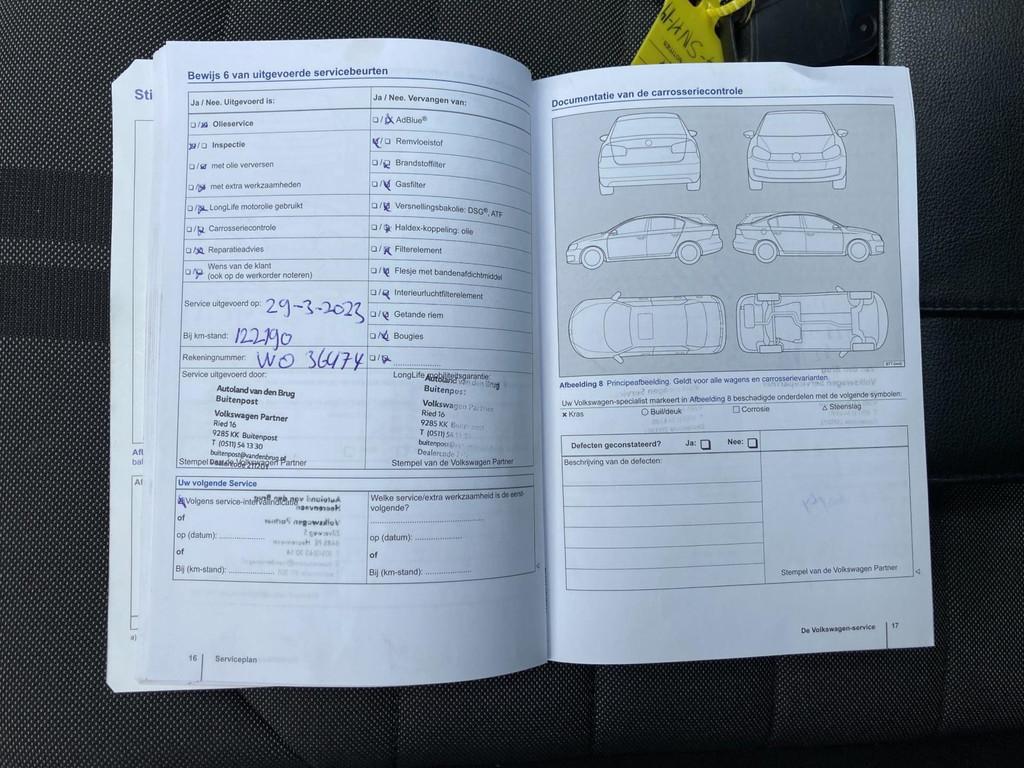 SNH-44
Sti
Bewijs 6 van uitgevoerde servicebeurten
Ja / Nee. Uitgevoerd is:
Olieservice
Inspectie
met olie verversen
met extra werkzaamheden
LongLife motorolie gebruikt
Carrosseriecontrole
Reparatieadvies
Wens van de klant
(ook op de werkorder noteren)
Ja / Nee. Vervangen van:
AdBlue®
Remvloeistof
Brandstoffilter
Gasfilter
Versnellingsbakolie: DSG®, ATF
Haldex-koppeling: olie
Filterelement
Flesje met bandenafdichtmiddel
Interieurluchtfilterelement
Getande riem
Bougies
Service uitgevoerd op: 29-3-2023
Bij km-stand: 122190
Rekeningnummer: WO 36474
Service uitgevoerd door:
Autoland van den Brug
Buitenpost
Volkswagen Partner
Ried 16
9285 KK Buitenpost
T (0511) 54 13 30
buitenpost@vandenbrug.nl
Stempel van de Volkswagen Partner
LongLife mobiliteitsgarantie:
Autoland van den Brug
Buitenpost
Volkswagen Partner
Ried 16
9285 KK Buitenpost
T (0511) 54 13
Stempel van de Volkswagen Partner
Uw volgende Service
Volgens service-intervalindicatie
of
op (datum): ....................
of
Bij (km-stand): ....................
Welke service/extra werkzaamheid is de eerst-
volgende?
op (datum): ....................
of
Bij (km-stand): ....................
16 Serviceplan
Documentatie van de carrosseriecontrole
Afbeelding 8 Principeafbeelding. Geldt voor alle wagens en carrosserievarianten.
Uw Volkswagen-specialist markeert in Afbeelding 8 beschadigde onderdelen met de volgende symbolen:
× Kras ○ Buil/deuk □ Corrosie △ Steenslag
Defecten geconstateerd? Ja: □ Nee: □
Beschrijving van de defecten:
Stempel van de Volkswagen Partner
De Volkswagen-service 17